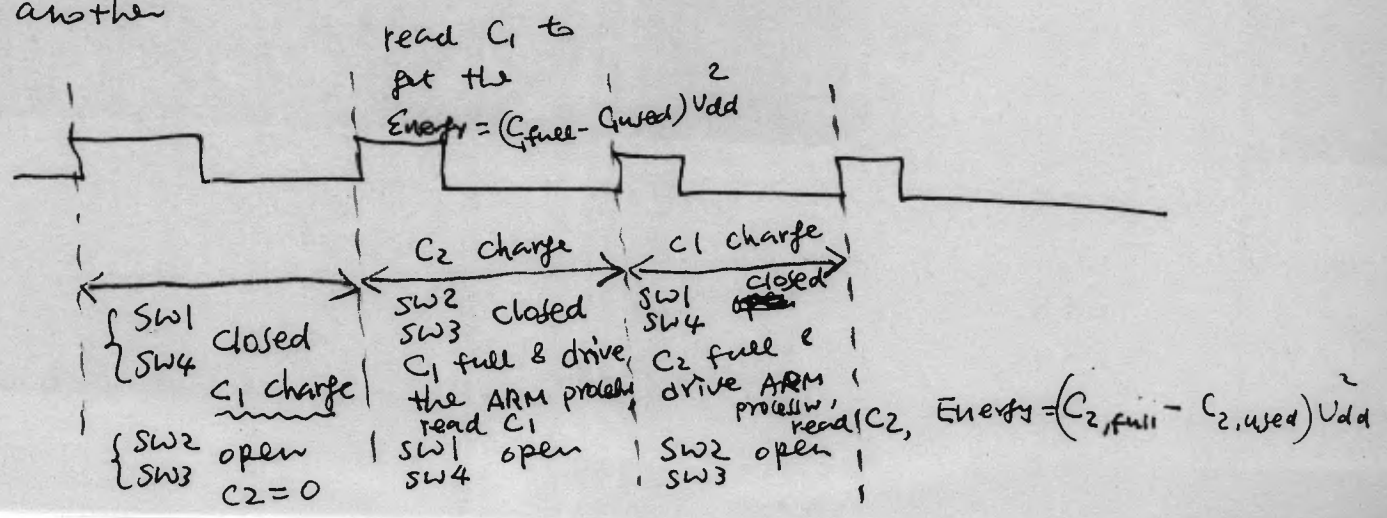 another
read C1 to
get the
Energy = (C1full - C1used) Vdd²
C2 charge
C1 charge
{ SW1
{ SW4 closed
C1 charge
{ SW2
{ SW3 open
C2 = 0
SW2
SW3 closed
C1 full & drive
the ARM process
read C1
SW1
SW4 open
SW1
SW4 closed
C2 full &
drive ARM
processor,
read C2, Energy = (C2,full - C2,used) Vdd²
SW2
SW3 open